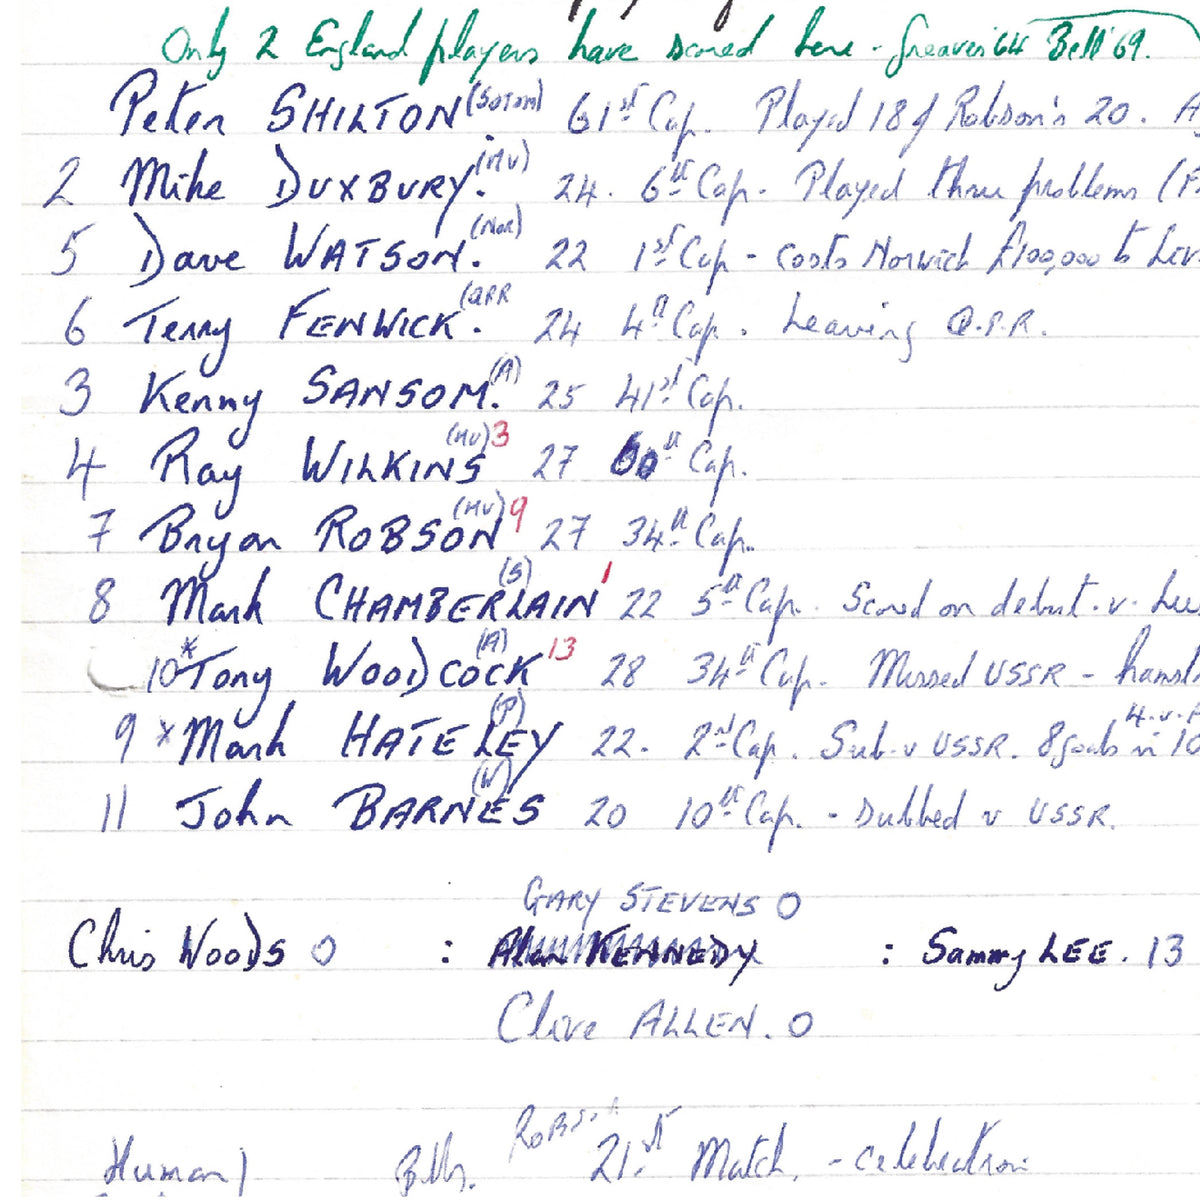 Only 2 England players have scored here - Greaves '64 Bell '69.
Peter SHILTON (SOTON) 61st Cap. Played 18 of Robson's 20. A
2 Mike DUXBURY. (MU) 24. 6th Cap. Played three problems (F
5 Dave WATSON. (Nor) 22 1st Cap - costs Norwich £100,000 to Liv
6 Terry FENWICK. (QPR 24 4th Cap. Leaving Q.P.R.
3 Kenny SANSOM. (A) 25 41st Cap.
4 Ray WILKINS (MU) 3 27 60th Cap.
7 Bryan ROBSON (MU) 9 27 34th Cap.
8 Mark CHAMBERLAIN (S) 1 22 5th Cap. Scored on debut. v. Lux
10* Tony WOODCOCK (A) 13 28 34th Cap. Missed USSR - hamst
9 * Mark HATELEY (P) 22. 2nd Cap. Sub. v USSR. 8 goals in 10
4. v. F
11 John BARNES (W) 20 10th Cap. - Dubbed v USSR.
GARY STEVENS 0
Chris WOODS 0 : Alan KENNEDY : Sammy LEE. 13
Clive ALLEN. 0
ROBSON
Human 21st Match. - celebration